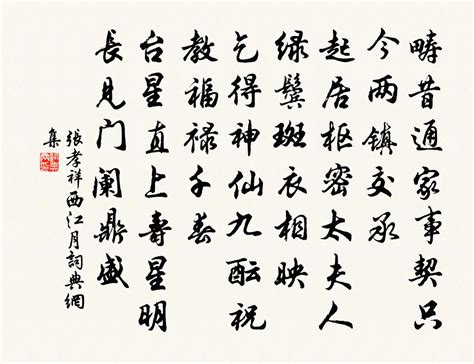 疇昔通家事契只
今两镇交承
起居枢密太夫人
绿鬓斑衣相映
乞得神仙九酝祝
教福禄千春
台星直上壽星明
長见门阑鼎盛
張孝祥西江月詞典網
集